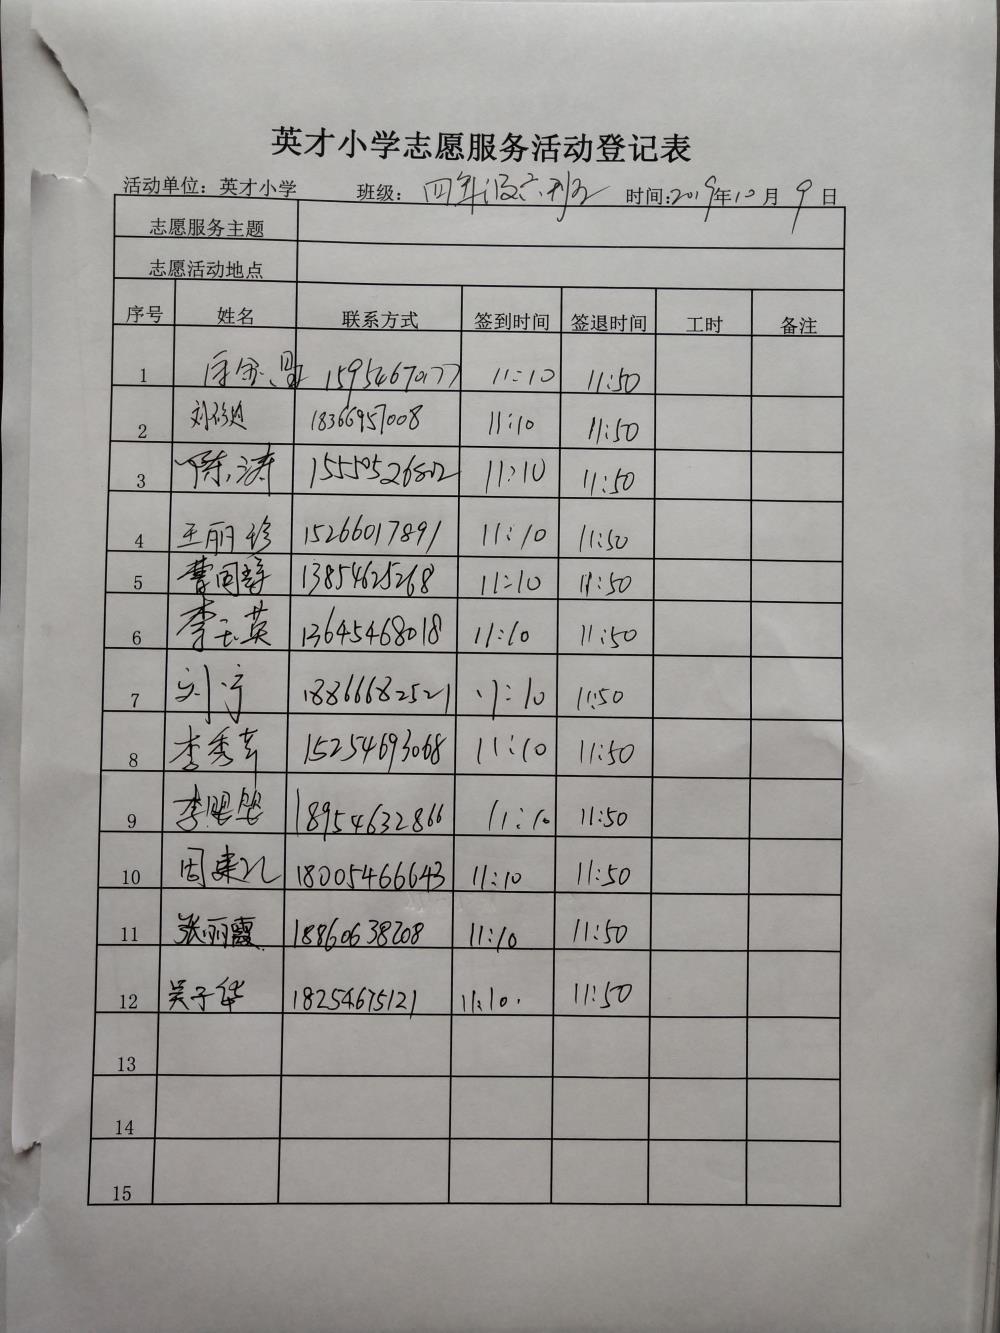 英才小学志愿服务活动登记表
活动单位：英才小学 班级：四年级六班 时间:2019年10月9日
志愿服务主题
志愿活动地点
序号 姓名 联系方式 签到时间 签退时间 工时 备注
1 11:10 11:50
2 18366957008 11:10 11:50
3 陈涛 11:10 11:50
4 王丽珍 15266017891 11:10 11:50
5 13854625268 11:10 11:50
6 李玉英 13645468018 11:10 11:50
7 刘宁 18866682521 11:10 11:50
8 李秀芹 15254693068 11:10 11:50
9 李 18954632866 11:10 11:50
10 周建 18005466643 11:10 11:50
11 张丽霞 18860638208 11:10 11:50
12 吴子华 18254675121 11:10. 11:50
13
14
15